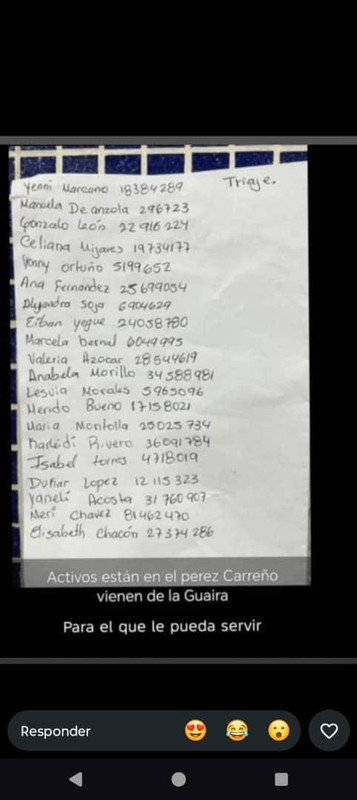 Triaje.
Yenni Marcano 18384289
Manuela De anzola 296723
Gonzalo León 22 916 224
Celiana Mijares 19734177
Yonny ortuño 5199652
Ana Fernandez 25699054
Alejandra Soja 6904629
Eiban yegue 24058780
Marcela bernal 6049995
Valeria Azocar 28544619
Anabela Morillo 34588981
Lesvia Morales 5965096
Mendo Bueno 17158021
Maria Montolla 25025734
Rivero 36091784
Isabel torres 4718019
Duhar Lopez 12 115 323
Yaneli Acosta 31 760 907
Meri Chavez 81462470
Elisabeth Chacón 27374286
Activos están en el perez Carreño
vienen de la Guaira
Para el que le pueda servir
Responder